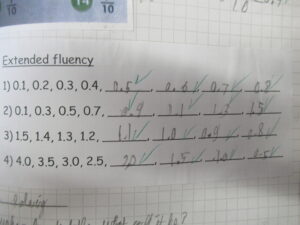 1/10 14 /10
Extended fluency
1) 0.1, 0.2, 0.3, 0.4, 0.5, 0.6, 0.7, 0.8
2) 0.1, 0.3, 0.5, 0.7, 0.9, 1.1, 1.3, 1.5
3) 1.5, 1.4, 1.3, 1.2, 1.1, 1.0, 0.9, 0.8
4) 4.0, 3.5, 3.0, 2.5, 2.0, 1.5, 1.0, 0.5
what will it be?